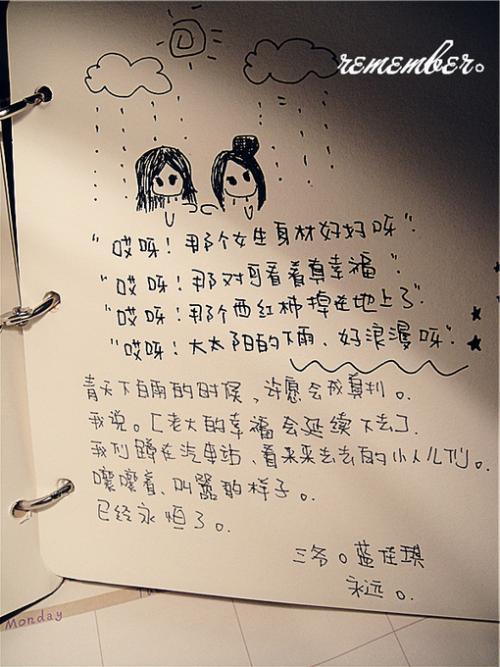 remember。
“哎呀！那个女生身材好好呀”
“哎呀！那对哥看着真幸福”
“哎呀！那个西红柿掉在地上了”
“哎呀！大太阳的下雨、好浪漫呀”
青天下白雨的时候，许愿会成真利。
我说。[老大的幸福会延续下去]。
我们蹲在汽车站、看来来去去的小人儿们。
嚷嚷着、叫嚣的样子。
已经永恒了。
三爷。蓝佳琪
永远。
Monday